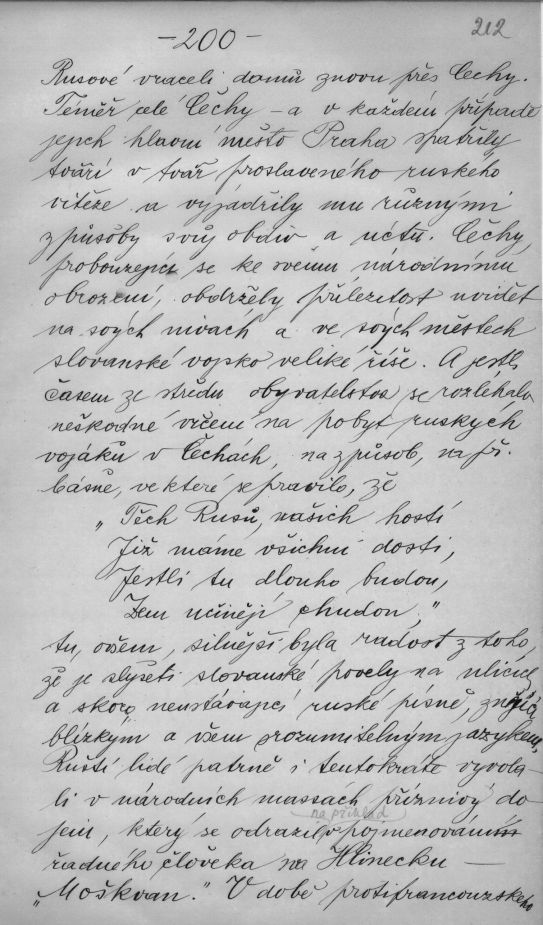 -200-
212
Rusové vraceli domů znovu přes Čechy.
Téměř celé Čechy - a v každém případě
jejich hlavní město Praha spatřily
tváří v tvář proslaveného ruského
vítěze a vyjádřily mu různými
způsoby svůj obdiv a úctu. Čechy,
probouzející se ke svému národnímu
obrození, obdržely příležitost uvidět
na svých nivách a ve svých městech
slovanské vojsko veliké říše. A jestli
časem ze středu obyvatelstva se rozléhalo
neškodné vrčení na pobyt ruských
vojáků v Čechách, na způsob, na př.
básně, ve které se pravilo, že
"Těch Rusů, našich hostí
Již máme všichni dosti,
Jestli tu dlouho budou,
Zem učinějí chudou,"
tu, ovšem, silnější byla radost z toho,
že je slyšeti slovanské povely na ulicích
a skoro neustávající ruské písně, znějící
blízkým a všem srozumitelným jazykem.
Ruští lidé patrně i tentokráte vyvola-
li v národních massách příznivý do-
na příklad
jem, který se odrazil v pojmenování
řádného člověka na Hlinecku -
"Moškvan." V době protifrancouzského